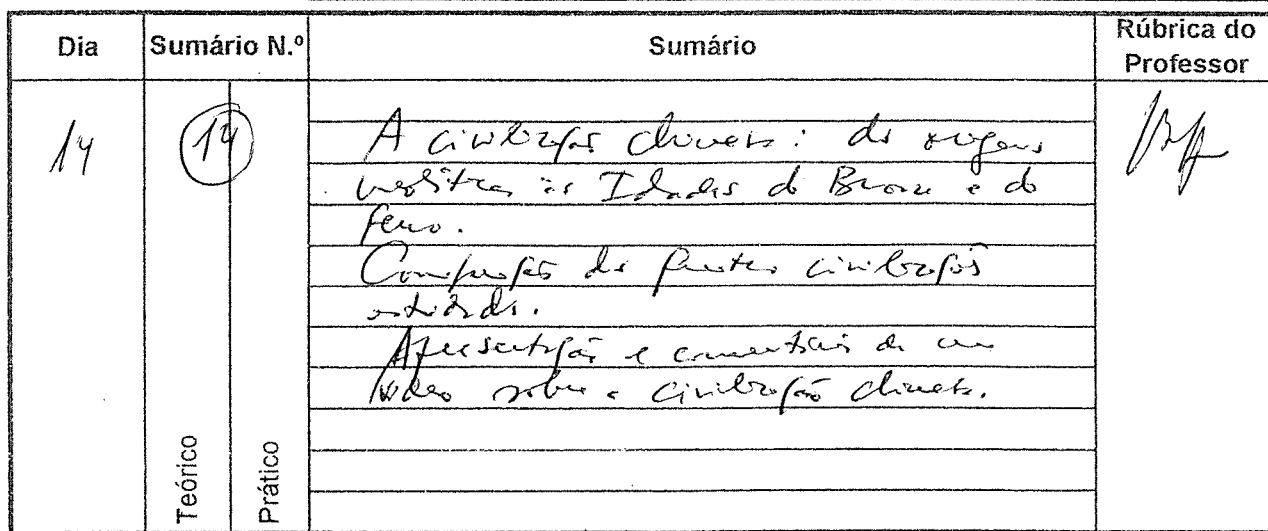 Dia Sumário N.º Sumário Rúbrica do Professor
14 14
A civilização chinesa: das origens
neolíticas às Idades do Bronze e do
ferro.
Comparação das quatro civilizações
estudadas.
Apresentação e comentário de um
vídeo sobre a civilização chinesa.
Teórico
Prático